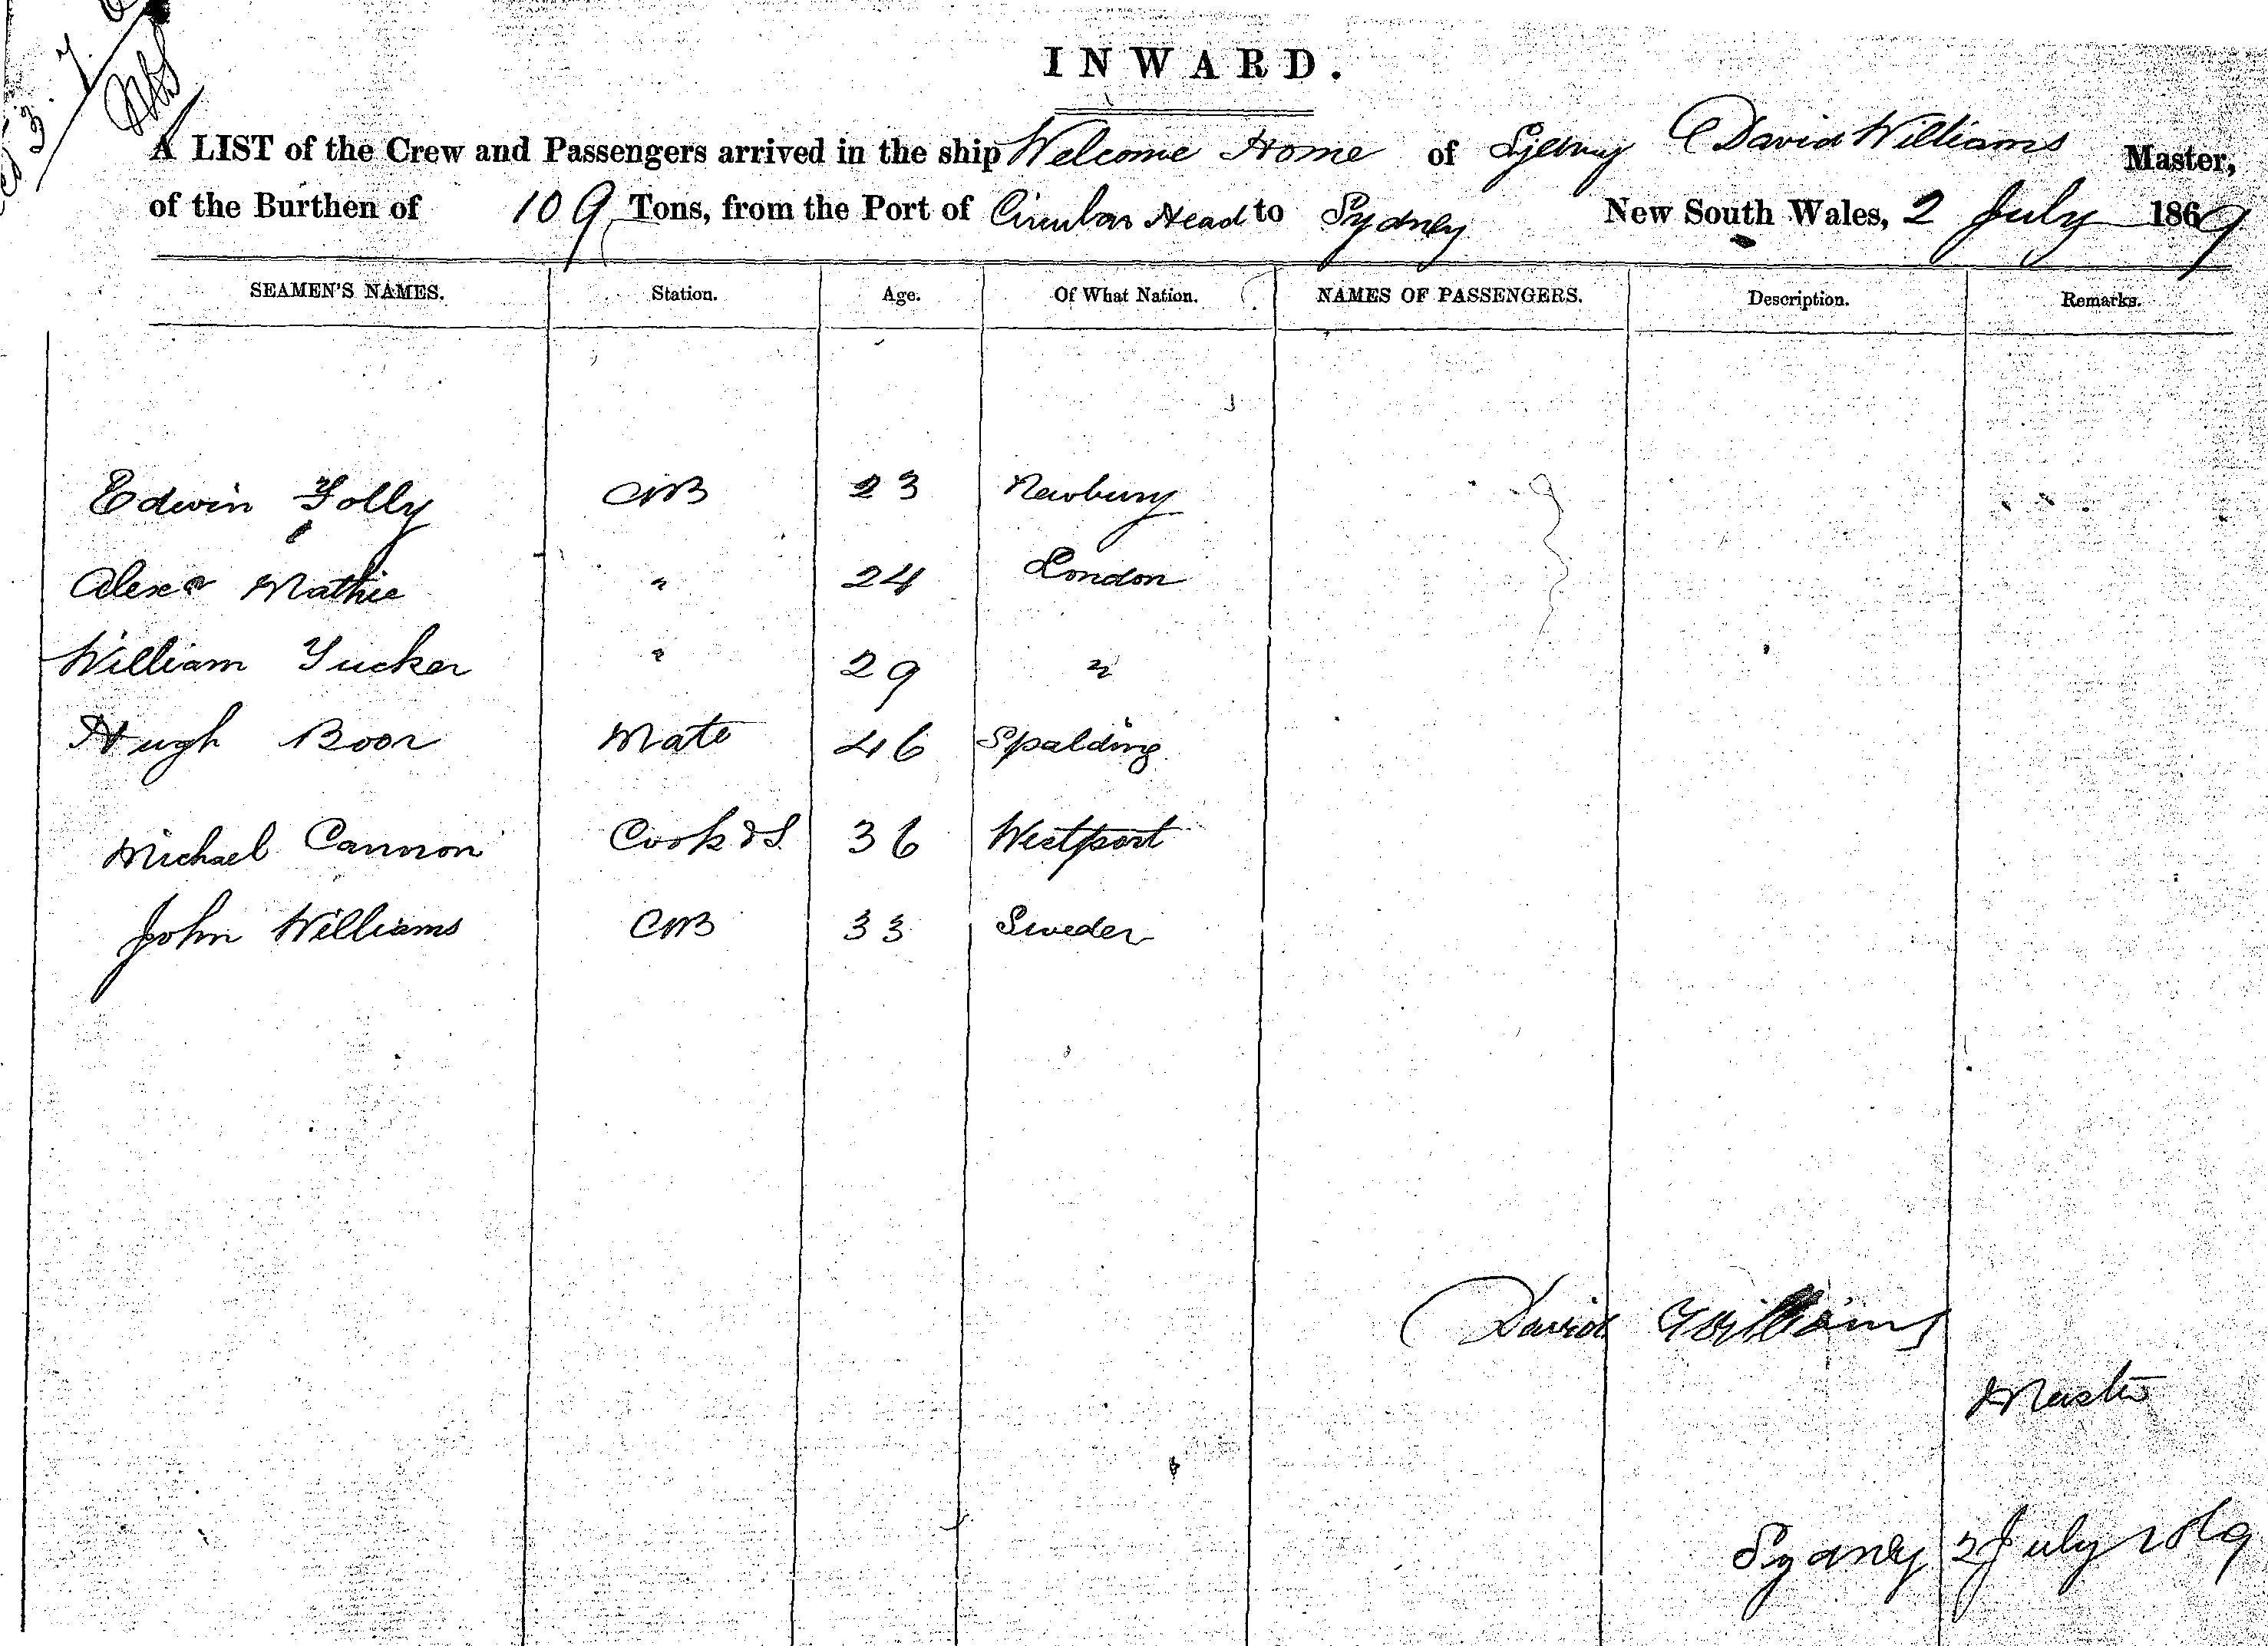 INWARD.
A LIST of the Crew and Passengers arrived in the ship Welcome Home of Sydney David Williams Master,
of the Burthen of 109 Tons, from the Port of Circular Head to Sydney New South Wales, 2 July 1869
SEAMEN'S NAMES. Station. Age. Of What Nation. NAMES OF PASSENGERS. Description. Remarks.
Edwin Folly AB 23 Newbury
Alexr Mathie " 24 London
William Tucker " 29 "
Hugh Boor Mate 46 Spalding
Michael Cannon Cook & S 36 Westport
John Williams AB 33 Sweden
David Williams
Master
Sydney 2 July 1869